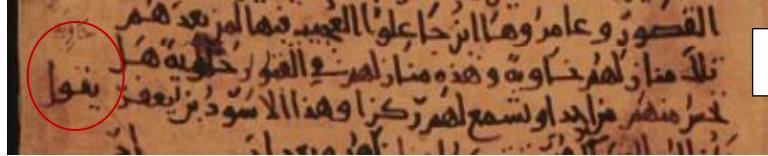 القصور و عامروها اين جاعلوا العجيب فيها لمن بعدهم
تلك منازلهم خاوية و هذه منازلهم في القبور خاوية هل
تحس منهم من احد او تسمع لهم ركزا وهذا الاسود بن يعفر يقول